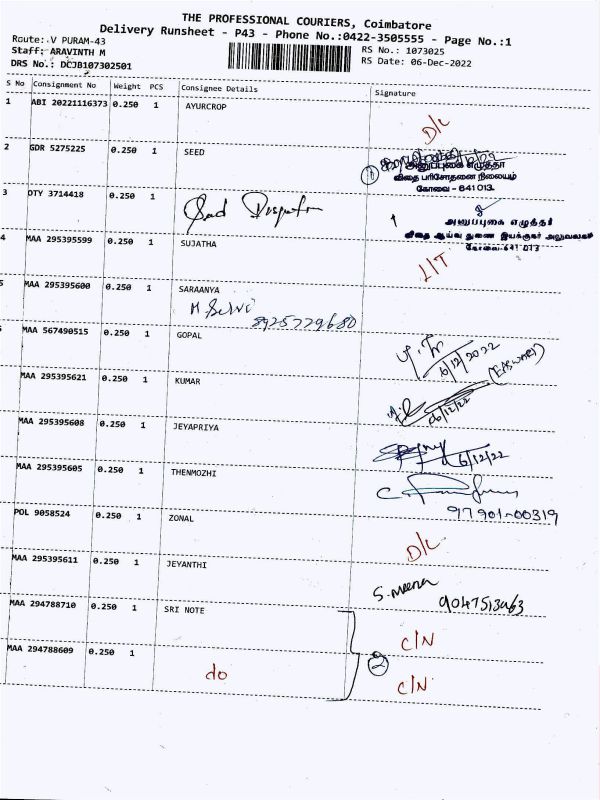 THE PROFESSIONAL COURIERS, Coimbatore
Delivery Runsheet - P43 - Phone No.:0422-3505555 - Page No.:1
Route: V PURAM-43
RS No.: 1073025
Staff: ARAVINTH M
RS Date: 06-Dec-2022
DRS No.: DCJB107302501
S No Consignment No Weight PCS Consignee Details Signature
1 ABI 20221116373 0.250 1 AYURCROP D/c
2 GDR 5275225 0.250 1 SEED
அனுப்புகை எழுத்தர்
விதை பரிசோதனை நிலையம்
கோவை - 641 013.
3 DTY 3714418 0.250 1
அனுப்புகை எழுத்தர்
விதை ஆய்வு துணை இயக்குநர் அலுவலகம்
கோவை-641 013
4 MAA 295395599 0.250 1 SUJATHA
5 MAA 295395600 0.250 1 SARAANYA
M. Selvi
8925779680
MAA 567490515 0.250 1 GOPAL
6/12/2022
(EASWARI)
MAA 295395621 0.250 1 KUMAR
06/12/22
MAA 295395608 0.250 1 JEYAPRIYA
6/12/22
MAA 295395605 0.250 1 THENMOZHI
97901-00319
POL 9058524 0.250 1 ZONAL D/c
MAA 295395611 0.250 1 JEYANTHI
S. meena
MAA 294788710 0.250 1 SRI NOTE C/N
2
MAA 294788609 0.250 1 do C/N